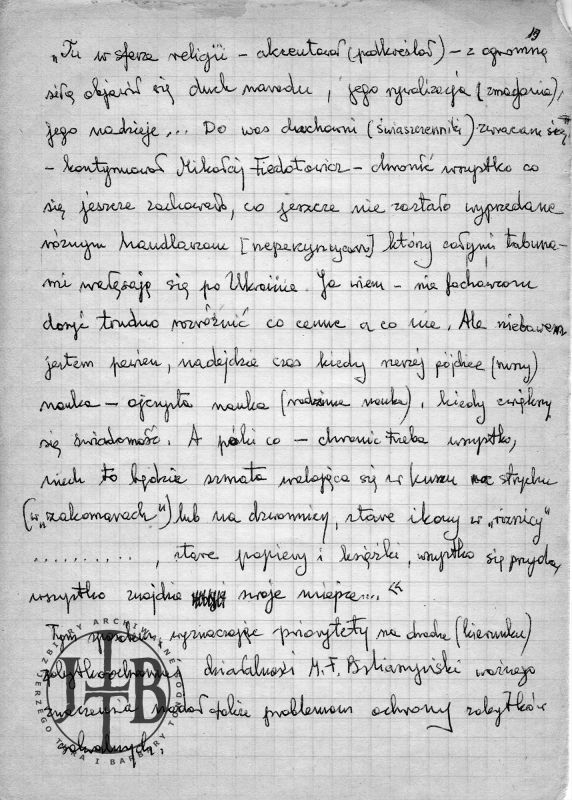 19
„Tu w sferze religii – akcentował (podkreślał) – z ogromną
siłą objawił się duch narodu, jego rywalizacja (zmagania),
jego nadzieje,... Do was duchowni (świaszczenniki) zwracam się,
– kontynuował Mikołaj Fiedotowicz – chronić wszystko co
się jeszcze zachowało, co jeszcze nie zostało wyprzedane
różnym handlarzom [] który całymi tabuna-
mi wałęsają się po Ukrainie. Ja wiem – nie fachowcom
dosyć trudno rozróżnić co cenne a co nie. Ale niebawem
jestem pewien, nadejdzie czas kiedy naprzód pójdzie (ruszy)
nauka – ojczysta nauka (rodzinna nauka), kiedy zwiększy
się świadomość. A póki co – chronić trzeba wszystko,
niech to będzie szmata walająca się w kurzu na strychu
(w „zakomarach") lub na dzwonnicy, stare ikony w „riznicy"
.........., stare papiery i książki, wszystko się przyda,
wszystko znajdzie swoje miejsce.... «
Tym sposobem wyznaczając priorytety na drodze (kierunku)
zabytkoochronnej działalności M. F. ważnego
znaczenia nadał także problemom ochrony zabytków
sakralnych,
ZBIORY ARCHIWALNE
JERZEGO TURA I BARBARY
JTB